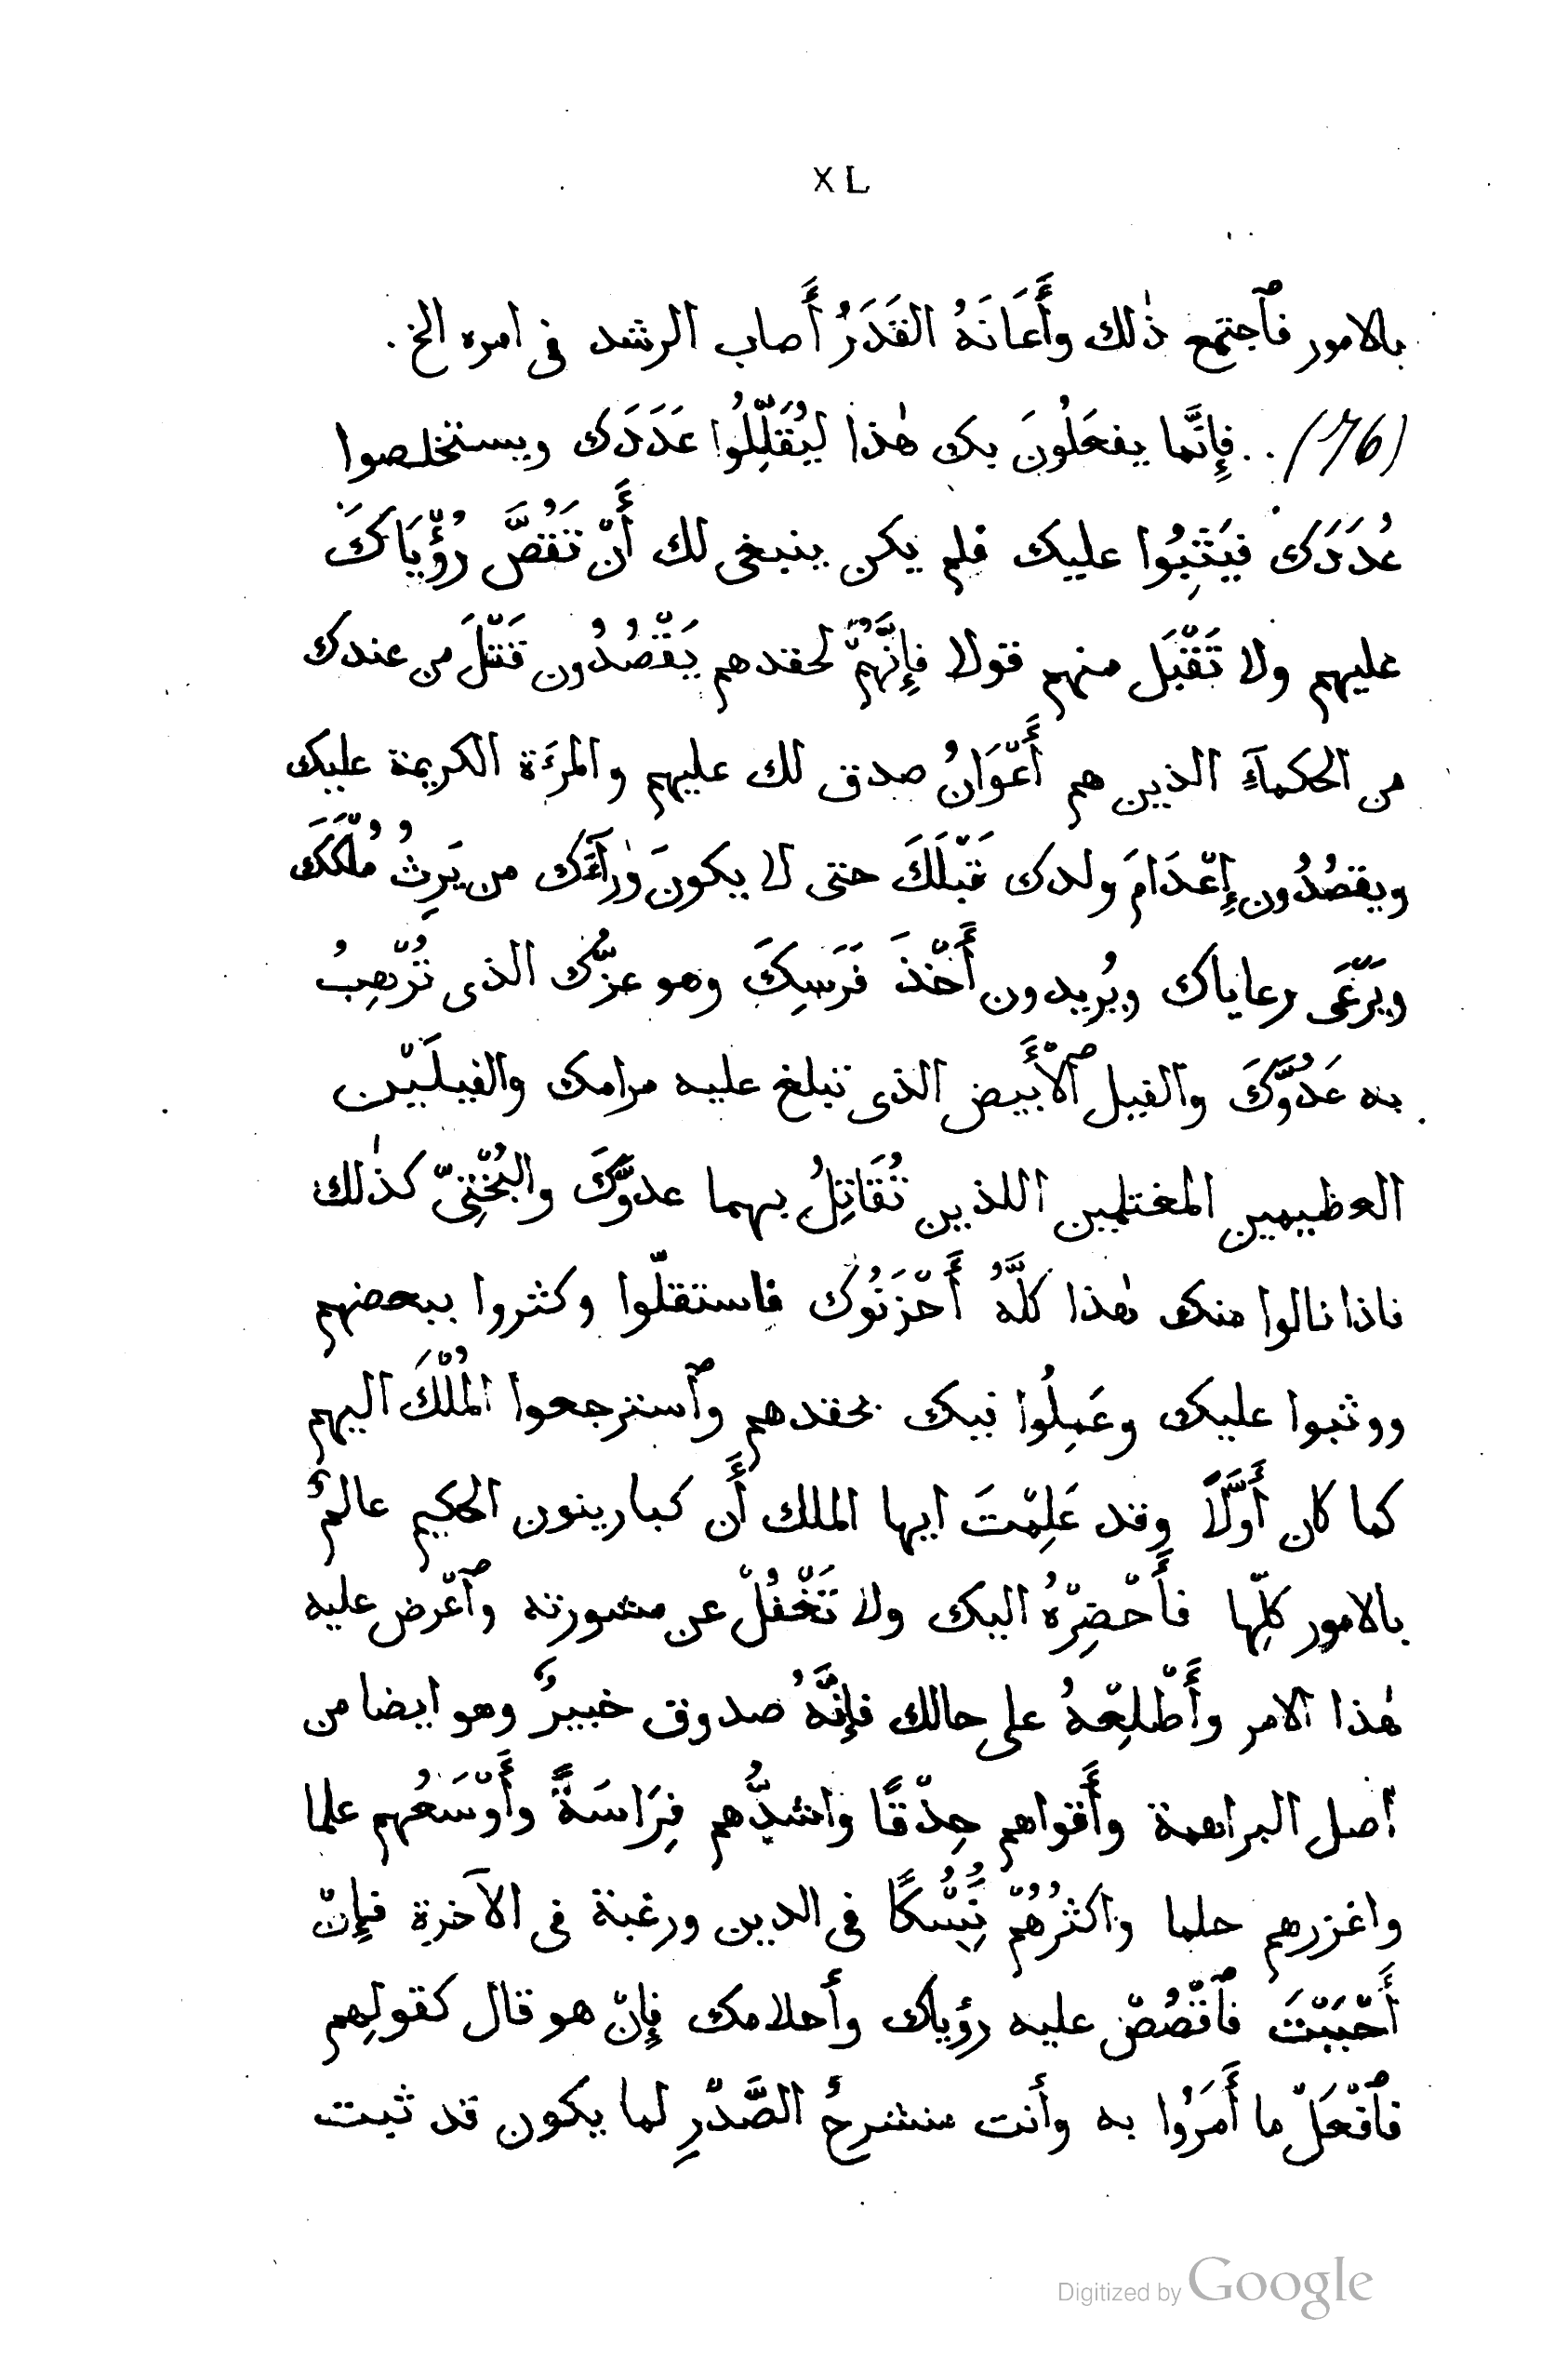 XL
بالامور فٱجتمع ذٰلك وأَعَانَهُ القَدَرُ أَصاب الرشد فى امره الخ.
(76) .. فإِنَّما يفعَلُونَ بك هٰذا لِيُقَلِّلُوا عَدَدَك ويستخلصوا
عُدَدَك فيَثِبُوا عليك فلم يكن ينبغى لك أَنْ تَقُصَّ رُؤْيَاكَ
عليهم ولا تَقْبَل منهم قولا فإِنَّهُمْ لحقدهم يَقْصُدُون قَتْلَ من عندك
من الحكمآءِ الذين هم أَعْوَانُ صدق لك عليهم والمرءَة الكريمة عليك
ويقصُدُون إِعْدَامَ ولدك قَبْلَكَ حتى لا يكونَ وَرآءَك من يَرِثُ مُلْكَكَ
ويَرْعَى رعاياك ويُريدون أَخْذَ فَرَسِكَ وهو عزُّك الذى تُرْهِبُ
به عَدُوَّكَ والفيل ٱلأَبْيض الذى تبلغ عليه مرامك والفيلَيْن
العظيمين المغتلمين اللذين تُقَاتِلُ بهما عدوَّكَ والبُخْتِىّ كذٰلك
فاذا نالوا منك هٰذا كلَّهُ أَحْزَنُوك فاستقلّوا وكثروا ببعضهم
ووثبوا عليك وعَمِلُوا فيك بحقدهم وٱسترجعوا المُلْكَ اليهم
كما كان أَوَّلاً وقد عَلِمْتَ ايها الملك أَن كبارينون الحكيم عالمٌ
بالامور كلِّها فأَحْضِرْهُ اليك ولا تَغْفُلْ عن مشورته وٱعْرض عليه
هٰذا الامر وأَطْلِعْهُ على حالك فإنَّهُ صدوق خبيرٌ وهو ايضا من
أصل البراهمة وأَقواهم حِذْقًا واشدُّهم فِرَاسَةً وأَوْسَعُهم علما
واغزرهم حلما واكثرُهُمْ نُسُكًا فى الدين ورغبة فى الآخرة فإِنْ
أَحْبَبْتَ فٱقْصُصْ عليه رؤياك وأحلامك فإِنْ هو قال كقولِهم
فٱفْعَلْ ما أَمَرُوا به وأنت منشرحُ الصَّدْرِ لما يكون قد ثبت
Digitized by Google